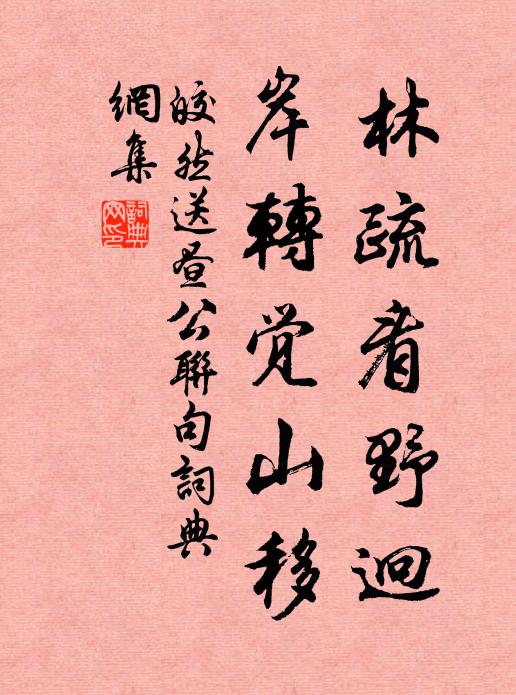 林疏看野迥
岸轉觉山移
皎然送昼公聯句詞典
網集
詞典
网印